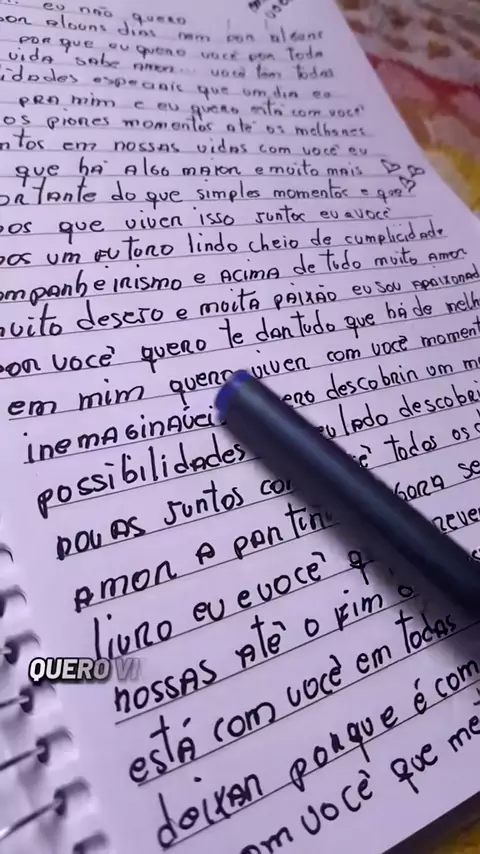 eu não quero
por alguns dias nem por alguns
porque eu quero você por toda
vida sabe amor... você tem todas
idades especiais que um dia eu
pra mim e eu quero está com você
os piores momentos até os melhores
ntos em nossas vidas com você eu
que há algo maior e muito mais
ortante do que simples momentos e que
os que viver isso juntos eu e você
os um futuro lindo cheio de cumplicidade
ompanheirismo e acima de tudo muito amor
muito desejo e muita paixão eu sou apaixonad
por você quero te dar tudo que há de melh
em mim quero viver com você moment
inemagináveis ero descobrir um m
possibilidades eu lado descobri
novas juntos co cê todos os d
amor a partir gora se
livro eu e você q rever
nossas até o fim
está com você em todas
deixar porque é com
om você que me
QUERO VI